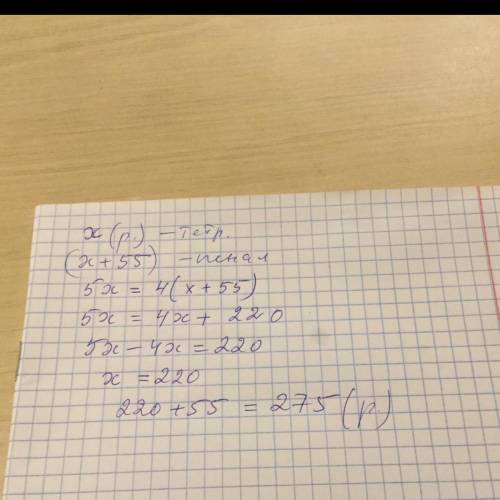 x (р.) – тетр.
(x + 55) – пенал
5x = 4(x + 55)
5x = 4x + 220
5x – 4x = 220
x = 220
220 + 55 = 275 (р.)